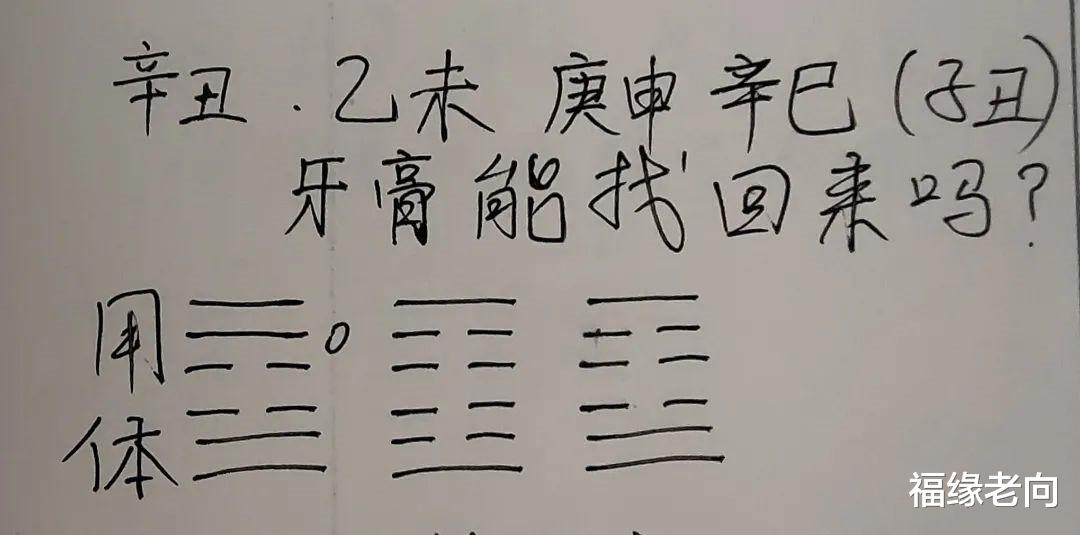 辛丑.乙未 庚申 辛巳(子丑)
牙膏能找回来吗?
用
体
福缘老向